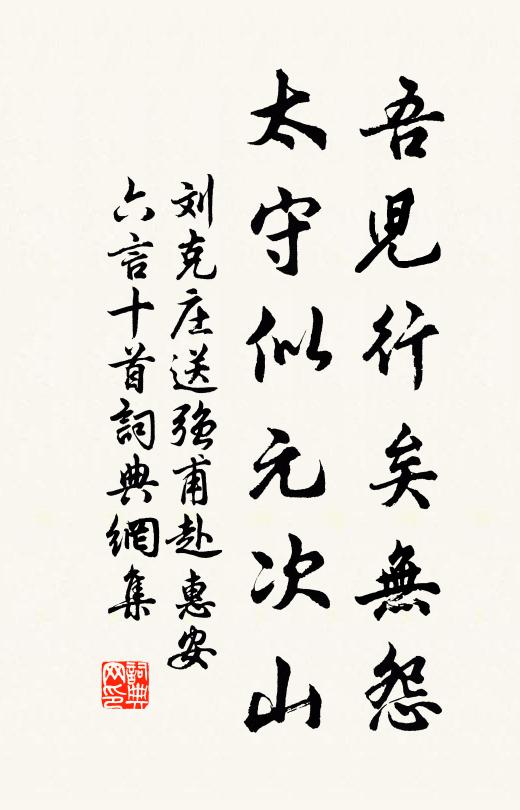 吾児行矣無怨
太守似元次山
刘克庄送强甫赴惠安
六言十首詞典網集
詞典网印